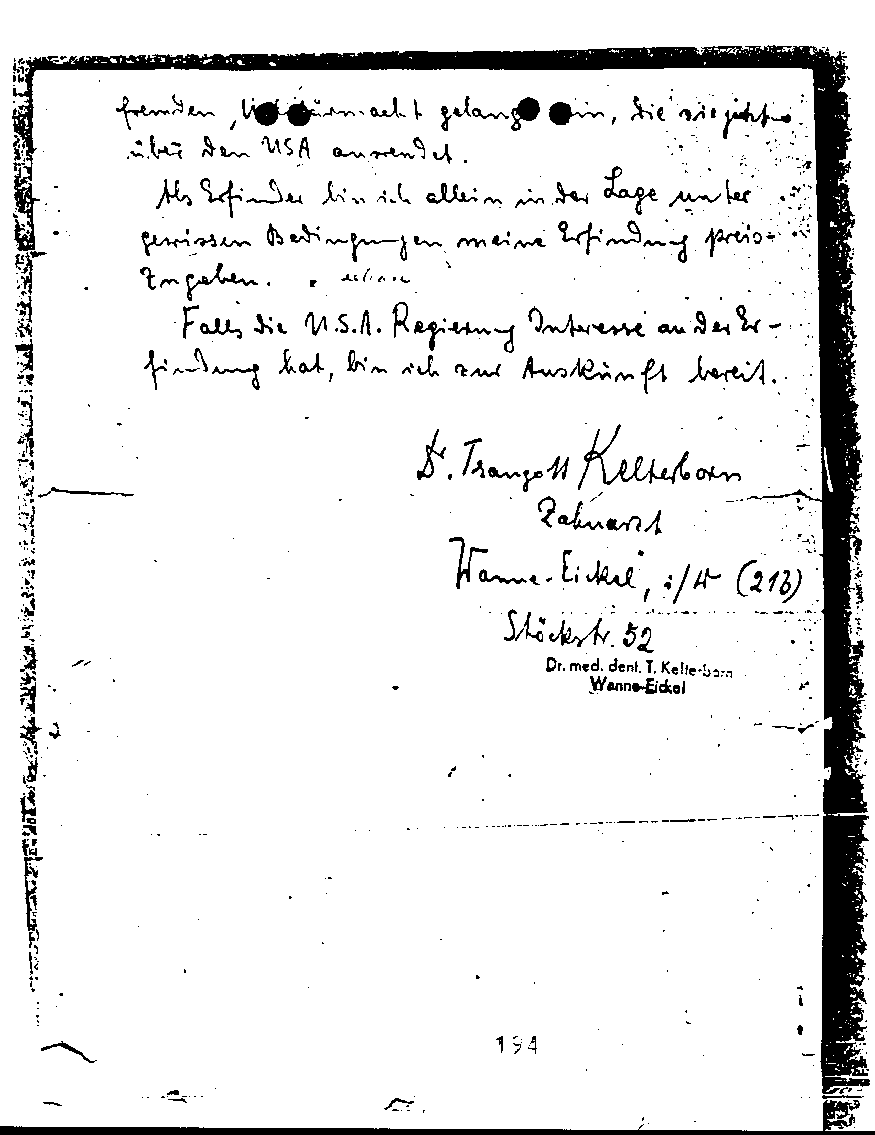 fremden gelangt sein, die sie jetzt
über den USA anwendet.
Als Erfinder bin ich allein in der Lage unter
gewissen Bedingungen meine Erfindung preis-
zugeben.
Falls die U.S.A. Regierung Interesse an der Er-
findung hat, bin ich zur Auskunft bereit.
Dr. Traugott Kelterborn
Zahnarzt
Wanne-Eickel, i/W (21b)
Stöckstr. 52
Dr. med. dent. T. Kelterborn
Wanne-Eickel
194